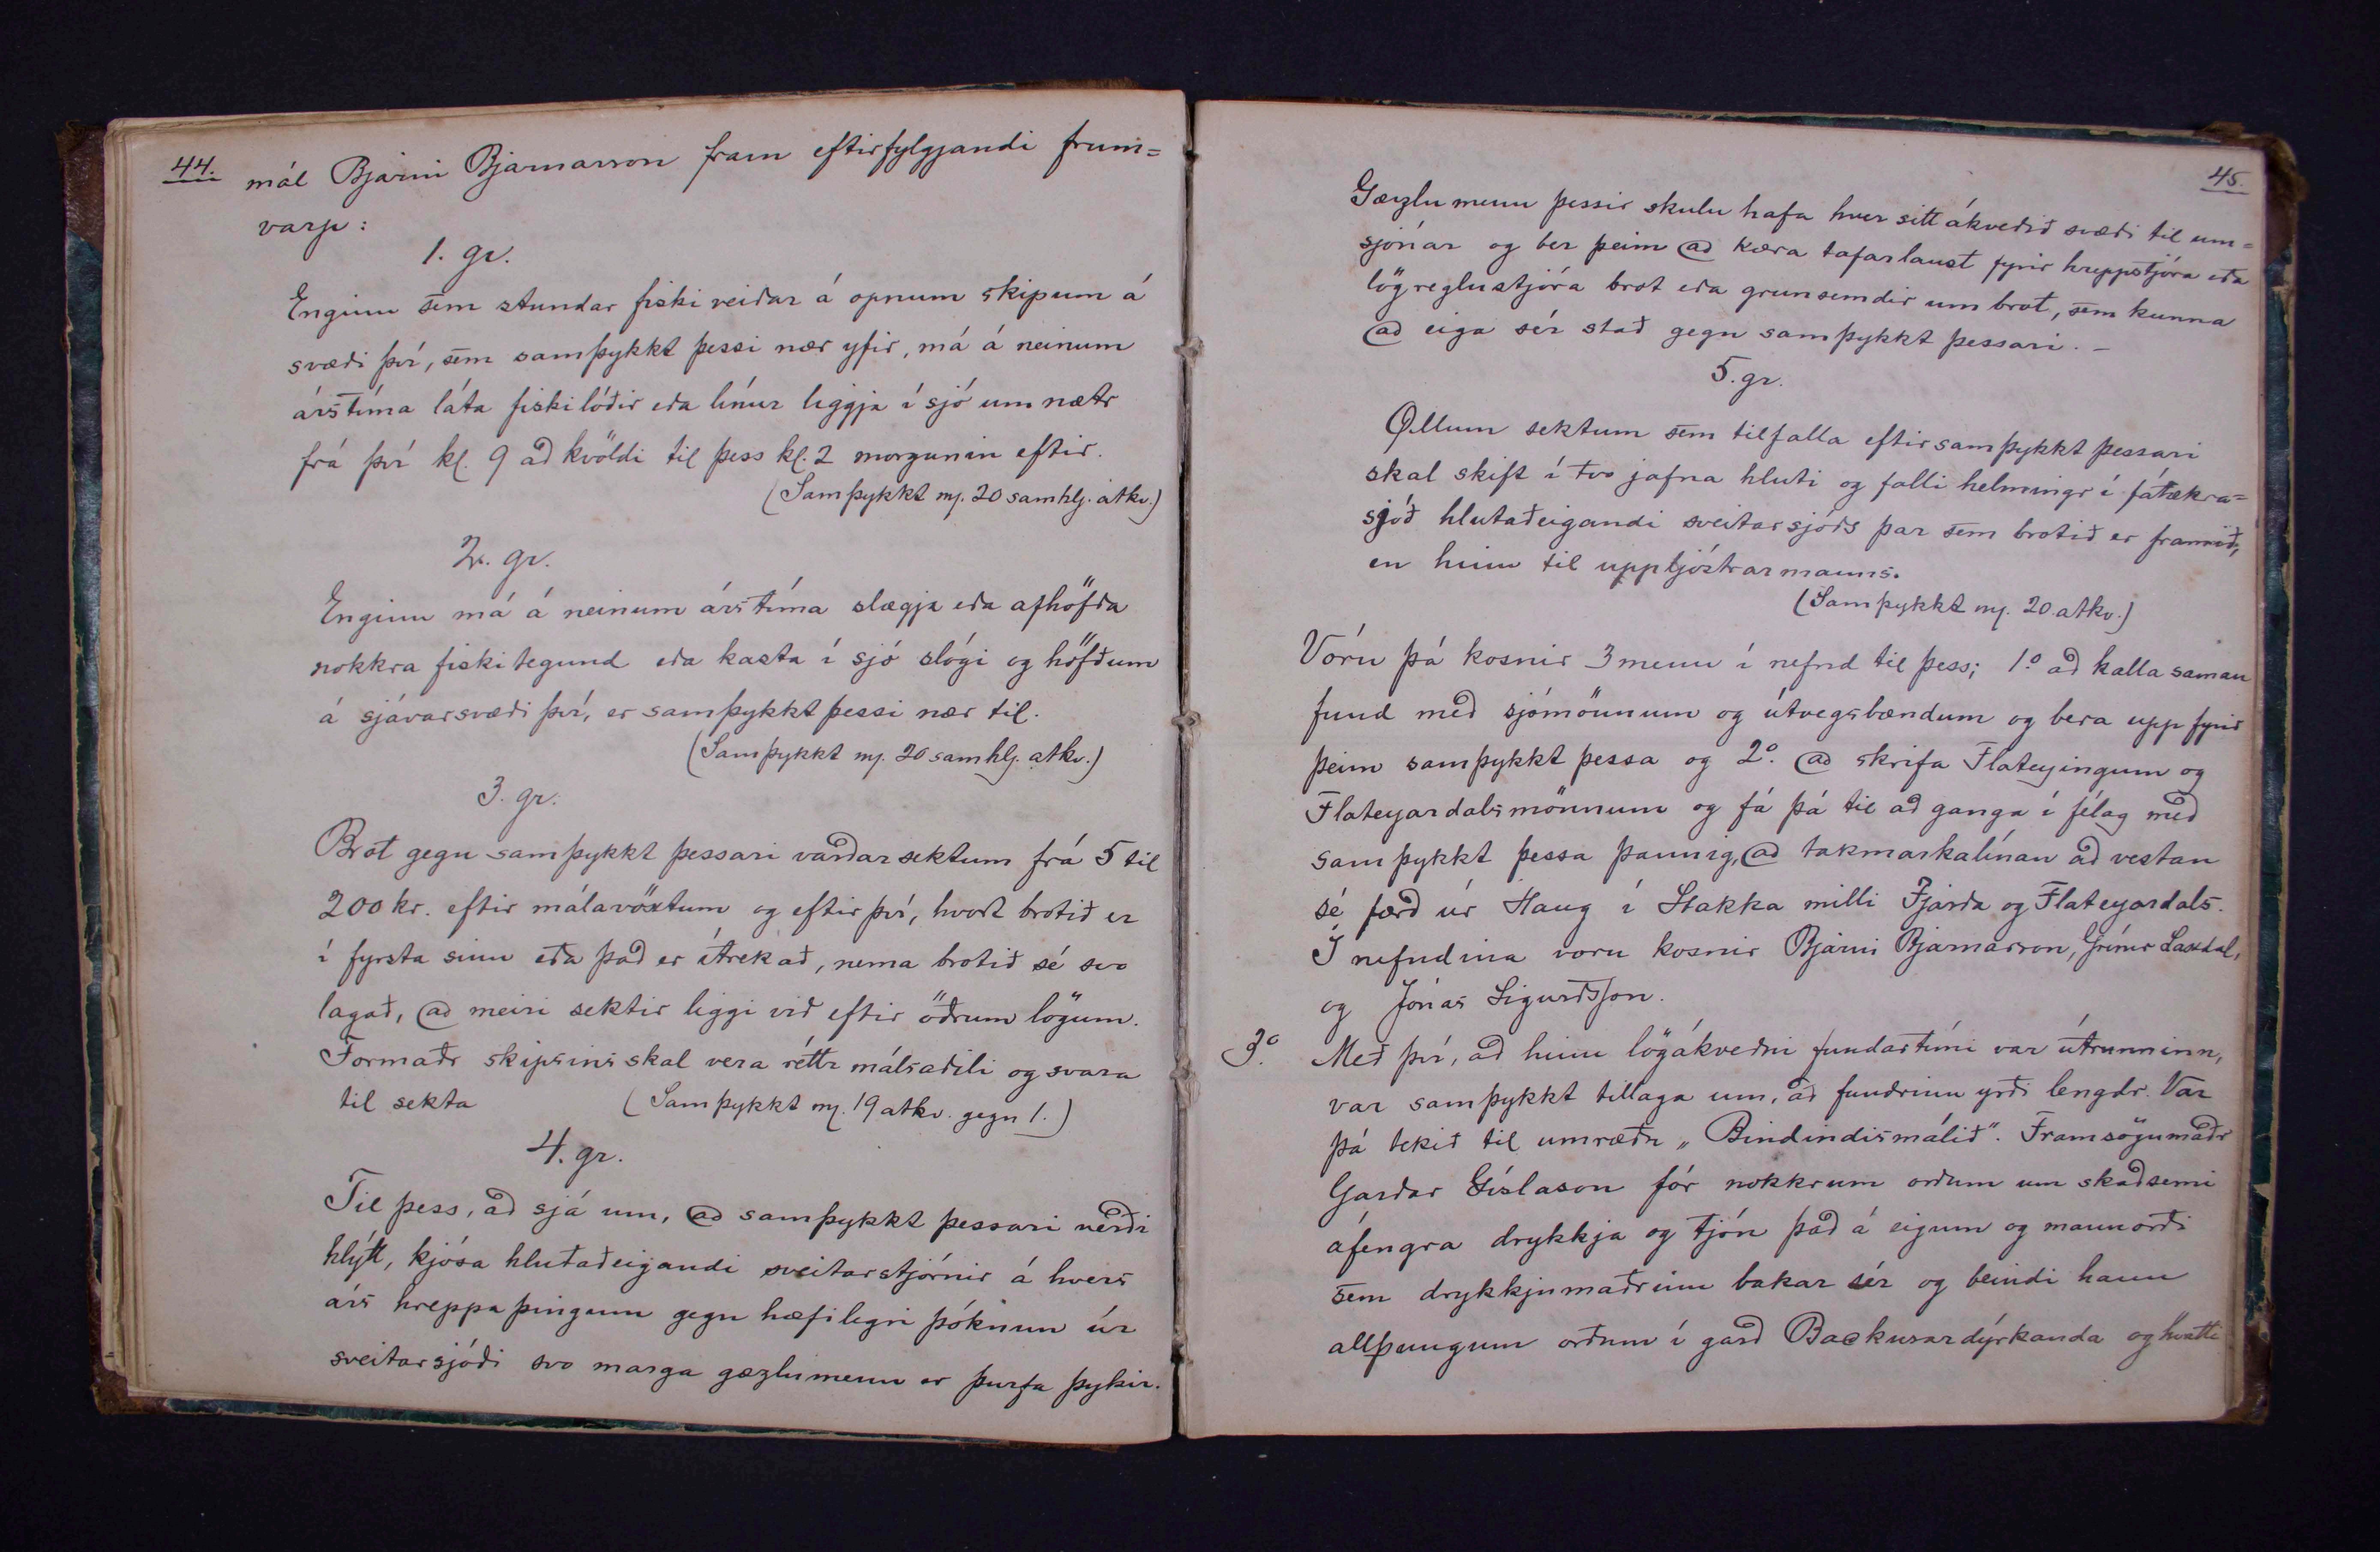 44. mál Bjarni Bjarnarson fram eftirfylgjandi frum=
varp:
1. gr.
Enginn sem stundar fiskiveiðar á opnum skipum á
svæði því, sem samþykkt þessi nær yfir, má á neinum
árstíma láta fiskilóðir eða línur liggja í sjó um nætr
frá því kl. 9 að kvöldi til þess kl. 2 morguninn eftir.
(Samþykkt m. 20 samhlj. atkv.)
2. gr.
Enginn má á neinum árstíma slægja eða afhöfða
nokkra fiskitegund eða kasta í sjó slógi og höfðum
á sjávarsvæði því, er samþykkt þessi nær til.
(Samþykkt m. 20 samhlj. atkv.)
3. gr.
Brot gegn samþykkt þessari varðar sektum frá 5 til
200 kr. eftir málavöxtum og eftir því, hvort brotið er
í fyrsta sinn eða það er ítrekað, nema brotið sé svo
lagað, að meiri sektir liggi við eftir öðrum lögum.
Formaðr skipsins skal vera réttr málsaðili og svara
til sekta (Samþykkt m. 19 atkv. gegn 1.)
4. gr.
Til þess, að sjá um, að samþykkt þessari verði
hlýtt, kjósa hlutaðeigandi sveitarstjórnir á hvers
árs hreppaþingum gegn hæfilegri þóknun úr
sveitarsjóði svo marga gæzlumenn er þurfa þykir.
45.
Gæzlumenn þessir skulu hafa hver sitt ákveðið svæði til um=
sjónar og ber þeim að kæra tafarlaust fyrir hreppstjóra eða
lögreglustjóra brot eða grunsemdir um brot, sem kunna
að eiga sér stað gegn samþykkt þessari. –
5. gr.
Öllum sektum sem tilfalla eftir samþykkt þessari
skal skift í tvo jafna hluti og falli helmingr í fátækra=
sjóð hlutaðeigandi sveitarsjóðs þar sem brotið er framið,
en hinn til uppljóstrarmanns.
(Samþykkt m. 20 atkv.)
Vóru þá kosnir 3 menn í nefnd til þess; 1.º að kalla saman
fund með sjómönnum og útvegsbændum og bera upp fyrir
þeim samþykkt þessa og 2.º að skrifa Flateyingum og
Flateyardalsmönnum og fá þá til að ganga í félag með
samþykkt þessa þannig, að takmarkalínan að vestan
sé færð úr Haug í Stakka milli Fjarða og Flateyardals.
Í nefndina voru kosnir Bjarni Bjarnarson, Grímur Laxdal,
og Jónas Sigurðsson.
3.º Með því, að hinn lögákveðni fundartími var útrunninn,
var samþykkt tillaga um, að fundrinn yrði lengdr. Var
þá tekið til umræðu „Bindindismálið“. Framsögumaðr
Garðar Gíslason fór nokkrum orðum um skaðsemi
áfengra drykkja og tjón það á eigum og mannorði
sem drykkjumaðrinn bakar sér og beindi hann
allþungum orðum í garð Backusardýrkanda og hvatti